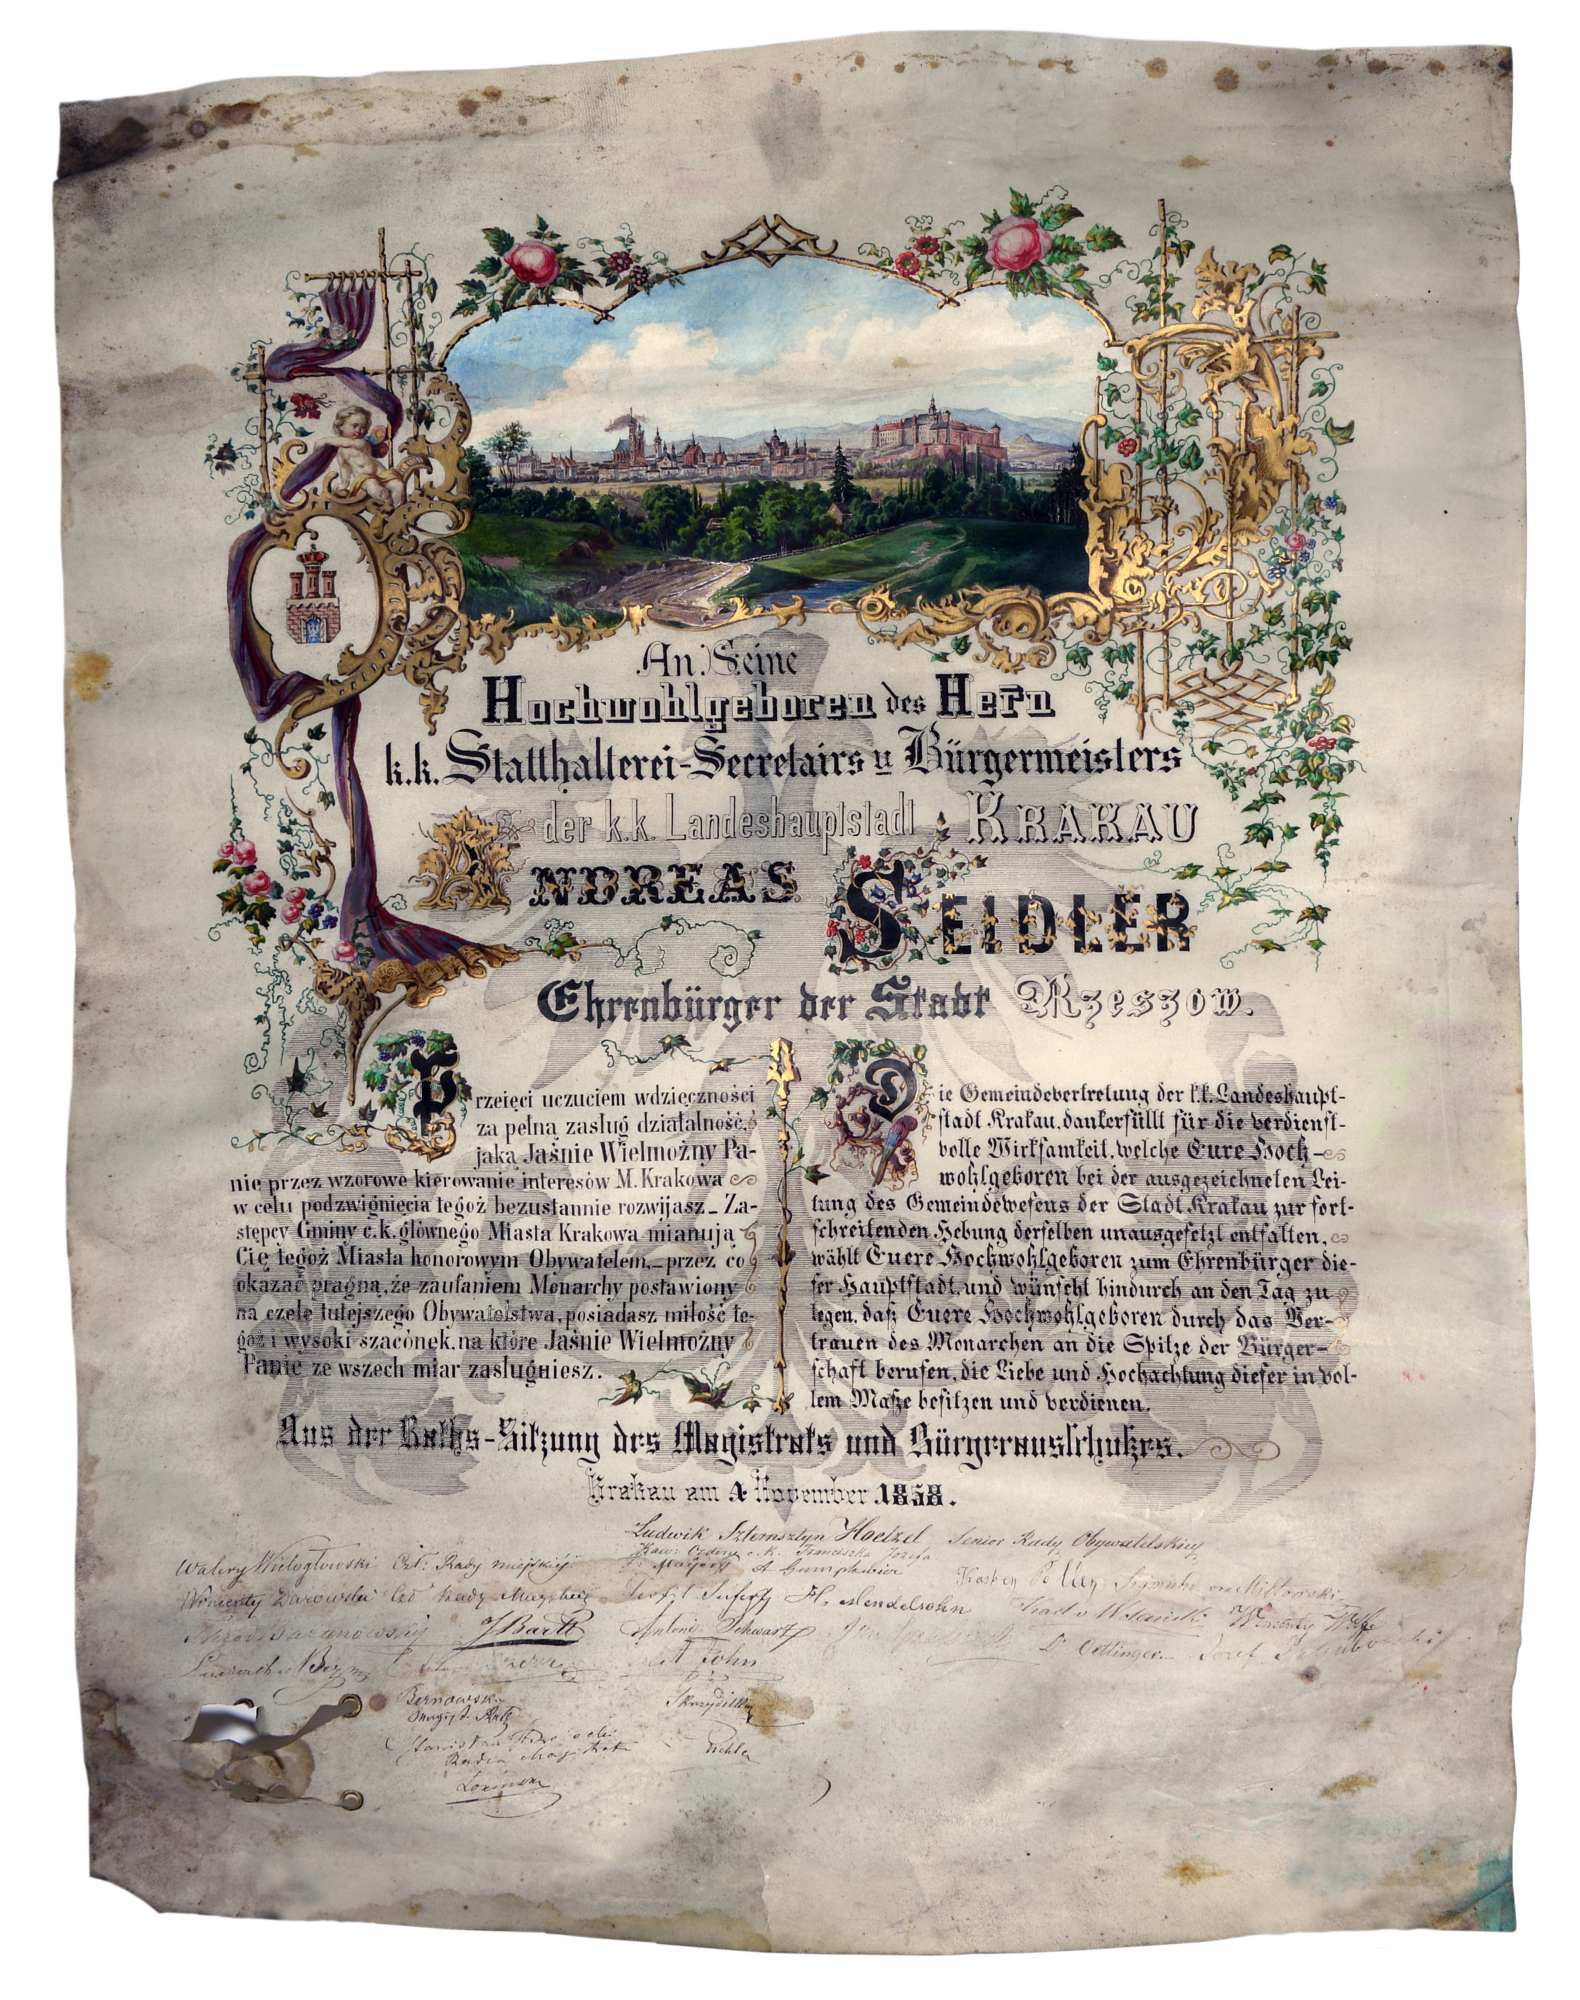 An Seine
Hochwohlgeboren des Hern
k.k. Statthalterei-Secretairs u Bürgermeisters
der k.k. Landeshauptstadt KRAKAU
ANDREAS SEIDLER
Ehrenbürger der Stadt Rzeszow.
Przeięci uczuciem wdzięczności
za pełną zasług działalność,
jaką Jaśnie Wielmożny Pa-
nie przez wzorowe kierowanie interesów M. Krakowa
w celu podzwignięcia tegoż bezustannie rozwijasz_ Za-
stępcy Gminy c.k. głównego Miasta Krakowa mianują
Cię tegoż Miasta honorowym Obywatelem,_ przez co
okazać pragną, że zaufaniem Monarchy postawiony
na czele tutejszego Obywatelstwa, posiadasz miłość te-
goż i wysoki szacónek, na które Jaśnie Wielmożny
Panie ze wszech miar zasługujesz.
Die Gemeindevertretung der k.k. Landeshaupt-
stadt Krakau, dankerfüllt für die verdienst-
volle Wirksamkeit, welche Eure Hoch-
wohlgeboren bei der ausgezeichneten Lei-
tung des Gemeindewesens der Stadt Krakau zur fort-
schreitenden Hebung derselben unausgesetzt entfalten,
wählt Euere Hochwohlgeboren zum Ehrenbürger die-
ser Hauptstadt, und wünscht hindurch an den Tag zu
legen, daß Euere Hochwohlgeboren durch das Ver-
trauen des Monarchen an die Spitze der Bürger-
schaft berufen, die Liebe und Hochachtung dieser in vol-
lem Maße besitzen und verdienen.
Aus der Raths-Sitzung des Magistrats und Bürgerausschußes.
Krakau am 4 November 1858.
Ludwik Szternsztyn Hoelzel Senior Rady Obywatelskiey
Kaw: Orderu c.k. Franciszka Józefa
Walery Wielogłowski Czł: Rady miejskiej
A Gumplowicz
Wincenty Darowski Czł Rady
H. Mendelsohn
J Barth
Antoni Schwarz
Dr Oettinger
John
Skrzydilka
Stanisław